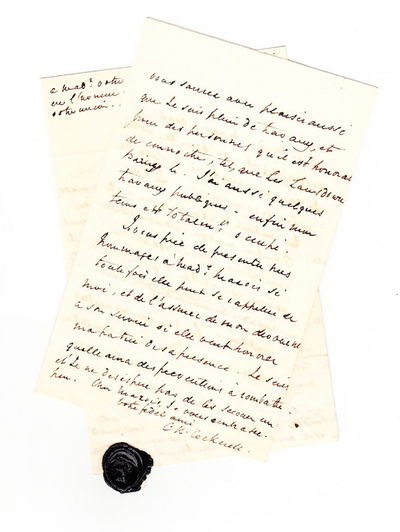 a Mad.e votre
en l'honneur
vous saurez avec plaisir aussi
que je suis plein de travaux, et
pour des personnes qu'il est honorable
de connaitre, tels que les
J'ai aussi quelques
travaux publiques - enfin mon
tems est totalem.t occupé.
Je vous prie de presenter mes
hommages à Mad.e si
toutefois elle peut se rappeller de
moi, et de l'assurer de mon
a son service si elle veut honorer
ma patrie de sa presence. Je sais
quelle aura des preventions à combattre
et je ne desespere pas de les
votre fidel ami
C. R. Cockerell